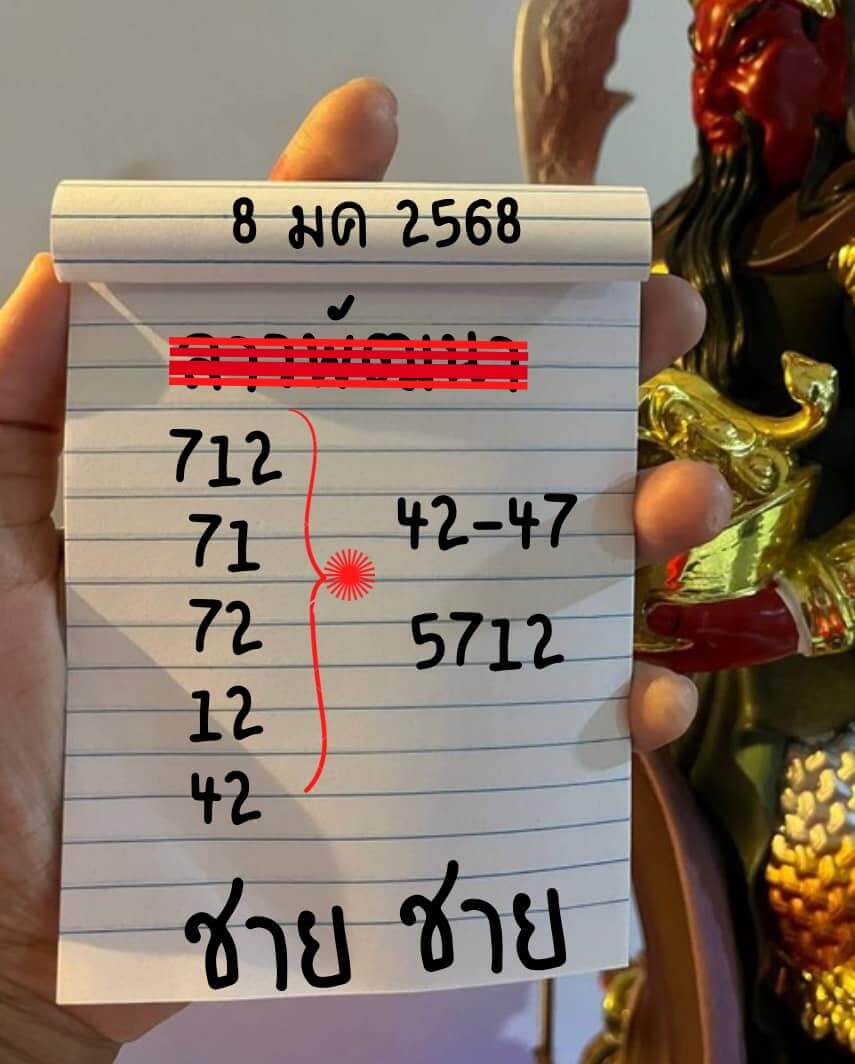 8 มค 2568
712
71
72
12
42
42-47
5712
ชาย ชาย